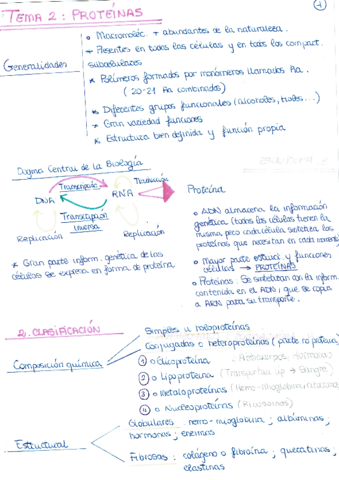 TEMA 2: PROTEÍNAS
1
Generalidades
o Macromoléc. + abundantes de la naturaleza.
Presentes en todas las células y en todos los compart.
subcelulares
* Polímeros formados por monómeros llamados Aa.
(20-21 Aa combinados)
* Diferentes grupos funcionales (alcoholes, tioles...)
* Gran variedad funciones
* Estructura bien definida y función propia
Dogma Central de la Biología
Transcripción
Traducción
DNA
RNA
Proteína
Transcripción
Inversa
Replicación
Replicación
* Gran parte inform. genética de las
células se expresa en forma de proteína
o ADN almacena la información
genética (todas las células tienen la
misma pero cada célula sintetiza las
proteínas que necesitan en cada momento)
o Mayor parte estruct. y funciones
células → PROTEÍNAS
o Proteínas. Se sintetizan con la inform.
contenida en el ADN, que se copia
a ARN para su transporte.
2. CLASIFICACIÓN
Composición química
Simples u holoproteínas
Conjugadas o heteroproteínas (parte no proteica)
1 o Glicoproteína (Anticuerpos, hormonas)
2 o Lipoproteína (Transportan lip → Sangre)
3 o Metaloproteínas (Hemo-mioglobina
4 o Nucleoproteínas (Ribosomas)
Estructural
Globulares: hemo-mioglobina; albúminas;
hormonas; enzimas
Fibrosas: colágeno o fibroína; queratinas;
elastinas